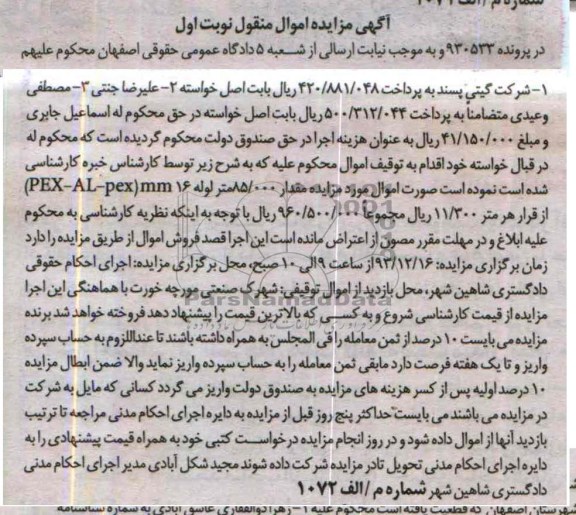 شماره م/الف ۱۰۷۱
آگهی مزایده اموال منقول نوبت اول
در پرونده ۹۳۰۵۳۳ و به موجب نیابت ارسالی از شعبه ۵ دادگاه عمومی حقوقی اصفهان محکوم علیهم
۱- شرکت گیتی پسند به پرداخت ۴۲۰/۸۸۱/۰۴۸ ریال بابت اصل خواسته ۲- علیرضا جنتی ۳- مصطفی
وعیدی متضامنا به پرداخت ۵۰۰/۳۱۲/۰۴۴ ریال بابت اصل خواسته در حق محکوم له اسماعیل جابری
و مبلغ ۴۱/۱۵۰/۰۰۰ ریال به عنوان هزینه اجرا در حق صندوق دولت محکوم گردیده است که محکوم له
در قبال خواسته خود اقدام به توقیف اموال محکوم علیه که به شرح زیر توسط کارشناس خبره کارشناسی
شده است نموده است صورت اموال مورد مزایده مقدار ۸۵/۰۰۰متر لوله ۱۶ mm(PEX-AL-pex)
از قرار هر متر ۱۱/۳۰۰ ریال مجموعا ۹۶۰/۵۰۰/۰۰۰ ریال با توجه به اینکه نظریه کارشناسی به محکوم
علیه ابلاغ و در مهلت مقرر مصون از اعتراض مانده است این اجرا قصد فروش اموال از طریق مزایده را دارد
زمان برگزاری مزایده: ۹۳/۱۲/۱۶ از ساعت ۹ الی ۱۰ صبح، محل برگزاری مزایده: اجرای احکام حقوقی
دادگستری شاهین شهر، محل بازدید از اموال توقیفی: شهرک صنعتی مورچه خورت با هماهنگی این اجرا
ParsNamadData
مزایده از قیمت کارشناسی شروع و به کسی که بالاترین قیمت را پیشنهاد دهد فروخته خواهد شد برنده
مزایده می بایست ۱۰ درصد از ثمن معامله را فی المجلس به همراه داشته باشند تا عنداللزوم به حساب سپرده
واریز و تا یک هفته فرصت دارد مابقی ثمن معامله را به حساب سپرده واریز نماید والا ضمن ابطال مزایده
۱۰ درصد اولیه پس از کسر هزینه های مزایده به صندوق دولت واریز می گردد کسانی که مایل به شرکت
در مزایده می باشند می بایست حداکثر پنج روز قبل از مزایده به دایره اجرای احکام مدنی مراجعه تا ترتیب
بازدید آنها از اموال داده شود و در روز انجام مزایده درخواست کتبی خود به همراه قیمت پیشنهادی را به
دایره اجرای احکام مدنی تحویل تا در مزایده شرکت داده شوند مجید شکل آبادی مدیر اجرای احکام مدنی
دادگستری شاهین شهر شماره م/الف ۱۰۷۲
شهرستان اصفهان که قطعیت یافته است محکوم علیه ۱- زهرا ذوالفقاری عاشق آبادی به شماره شناسنامه